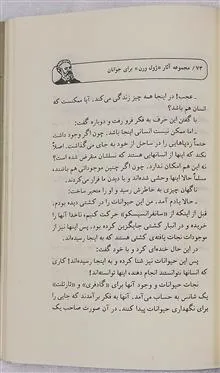 ۷۳/ مجموعه آثار «ژول ورن» برای جوانان
ـ عجب! در اینجا همه چیز زندگی می‌کند. آیا ممکنست که
انسان هم باشد؟
با گفتن این حرف به فکر فرو رفت و بعد گفت:
ـ اما ممکن نیست انسانی اینجا باشد. چون اگر وجود داشت
حتماً ردپاهایی را در ساحل از خود به جای می‌گذاشت. اصلاً
نکند که اینها از انسانهایی هستند که نسلشان منقرض شده است؟
نه این هم امکان ندارد. چون اگر چنین موجوداتی هم باشند،
مسلماً حالا اینها وحشی شده‌اند و با دیدن ما فرار می‌کردند.
ناگهان چیزی به خاطرش رسید و او را متحیر ساخت:
ـ حالا یادم آمد. من این حیوانات را در کشتی دیده بودم.
قبل از اینکه از «سانفرانسیسکو» حرکت کنیم، ناخدا آنها را
خریده و در انبار کشتی جایگزین کرده بود. پس اینها نیز از
موجودات نجات یافته‌ی کشتی هستند که به اینجا رسیده‌اند.
در این حال خنده‌ای کرد و با خود گفت:
پس این حیوانات نیز شنا کرده و به اینجا رسیده‌اند! کاری
که انسانها نتوانستند انجام دهند، اینها توانسته‌اند!
نجات حیوانات و وجود آنها برای «گادفری» و «تارتلت»
یک شانس به حساب می‌آمد. آنها به فکر برآمدند که جایی را
برای نگهداری حیوانات پیدا کنند. در آن صورت صاحب یک